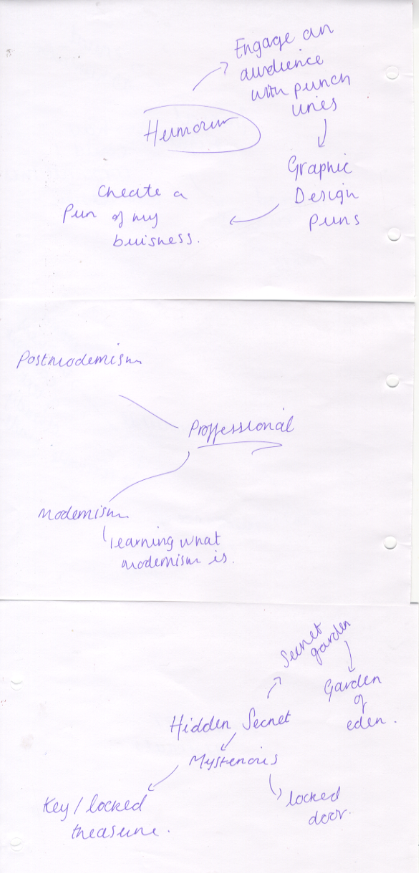 Engage an
audience
with punch
lines
Humour
Graphic
Design
puns
Create a
Pun of my
buisness.
Postmodernism
Proffessional
Modernism
learning what
modernism is.
Secret
garden
Garden
of
eden.
Hidden Secret
Mysterious
Key/locked
treasure.
locked
door.